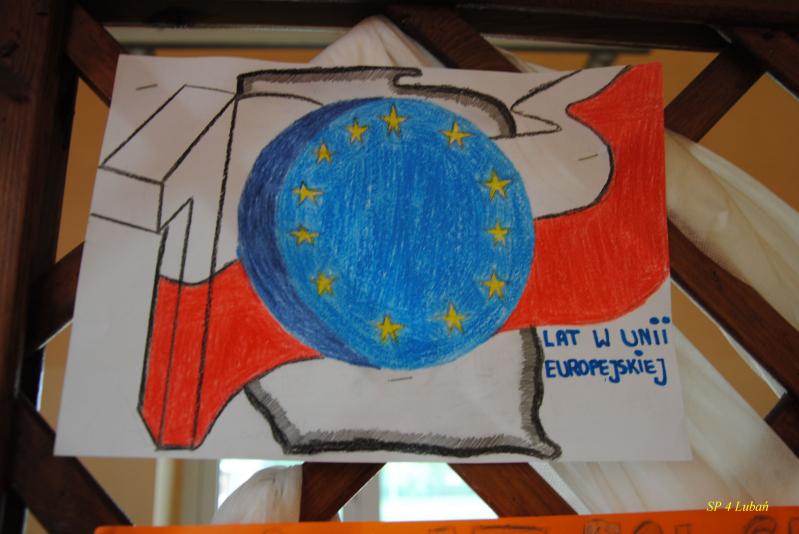 LAT W UNII
EUROPEJSKIEJ
SP 4 Lubań